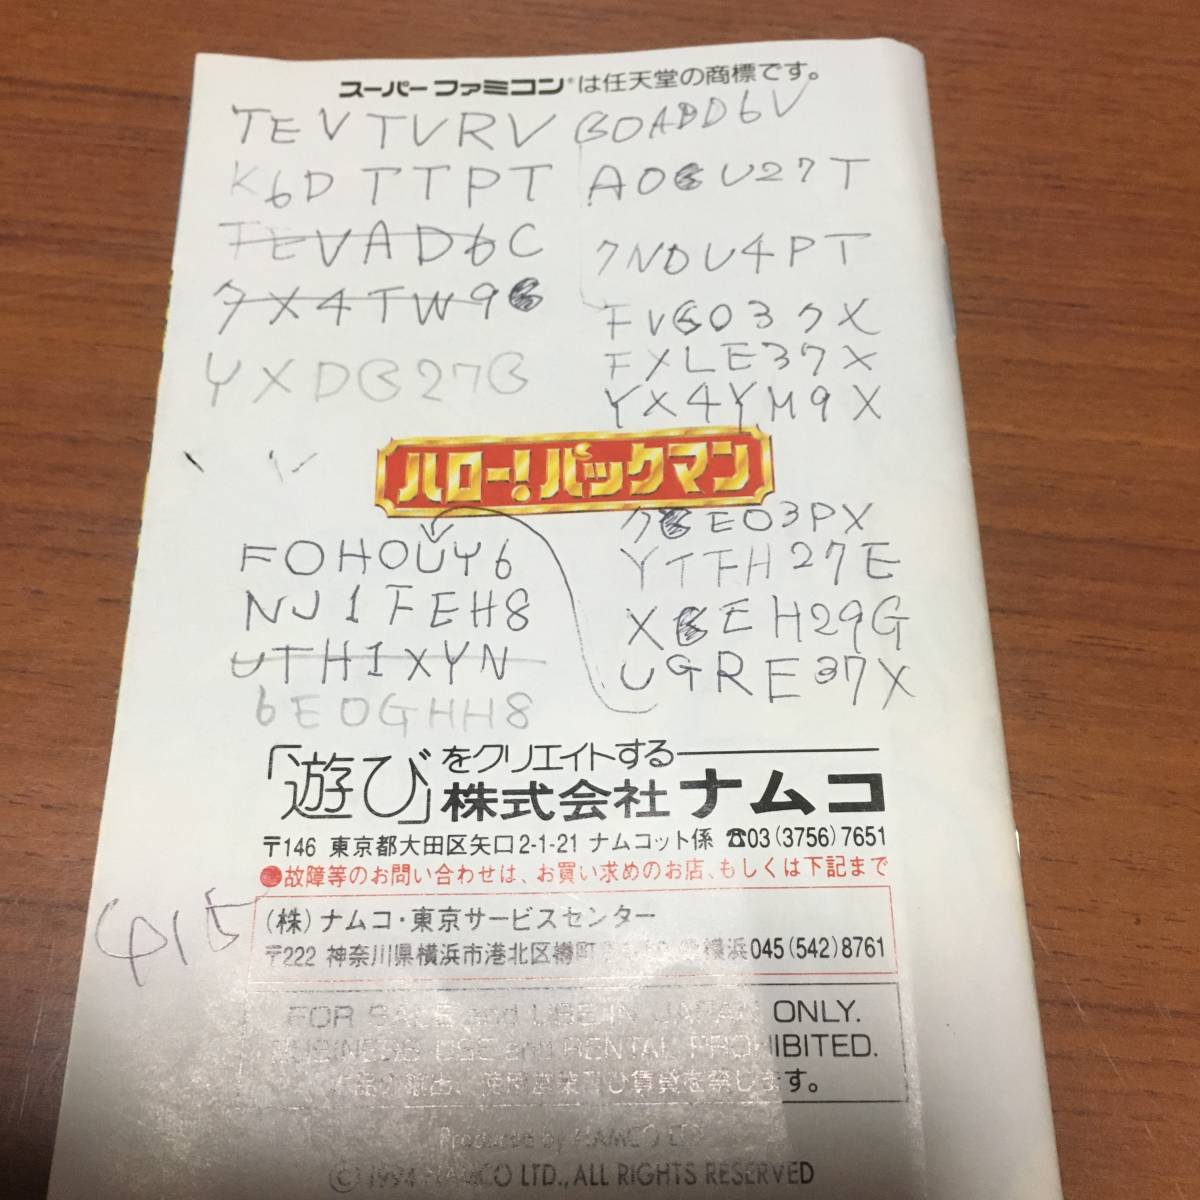 スーパーファミコン®は任天堂の商標です。
TEVTVRV
K6DTTPT
TEVAD6C
7X4TW9
YXDB27B
BOABD6V
U27T
7NDU4PT
FVGO37X
FXLE37X
YX4YM9X
ハロー!パックマン
FOHOUY6
NJ1FEH8
UTH1XYN
6EOGHH8
EO3PX
YTFH27E
EH29G
UGRE37X
「遊び」をクリエイトする
株式会社ナムコ
〒146 東京都大田区矢口2-1-21 ナムコット係 ☎03(3756)7651
●故障等のお問い合わせは、お買い求めのお店、もしくは下記まで
(株)ナムコ・東京サービスセンター
〒222 神奈川県横浜市港北区樽町 横浜045(542)8761
FOR SALE and USE IN JAPAN ONLY.
BUSINESS USE and RENTAL PROHIBITED.
Produced by NAMCO LTD.
©1994 NAMCO LTD., ALL RIGHTS RESERVED